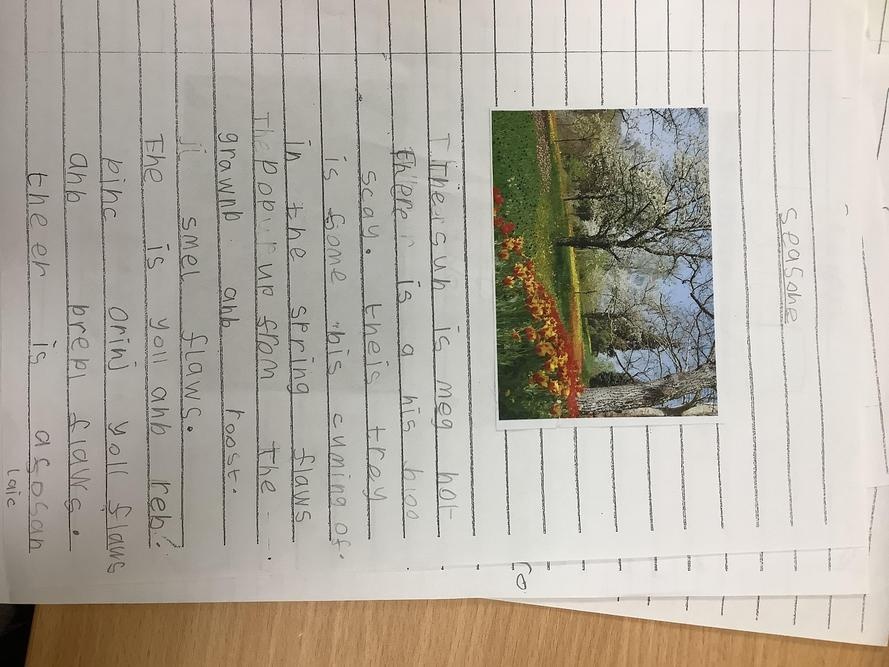 seasone
The sun is meg hot
there is a his bloo
scay. theis trey
is fome his cuming of.
in the spring flaws
The pop up from the
grawnb anb roost.
ji smel flaws.
The is yoll anb reb?
pinc orinj yoll flaws
anb prepl flaws.
theer is afosan
laic